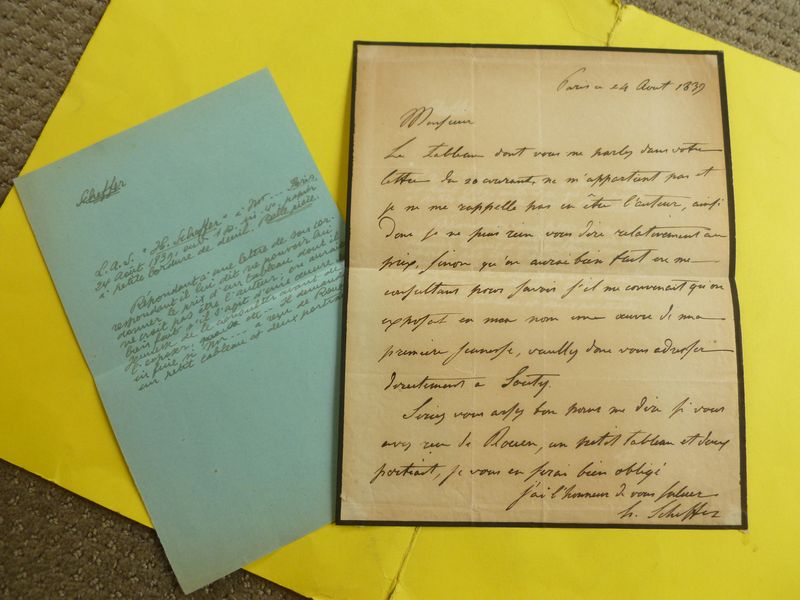 Scheffer
L.A.S. "H. Scheffer" à Mr ... Paris,
24 août 1839, sur 1 p. gd. in-4°, papier
à petite bordure de deuil. Belle pièce.
Répondant à une lettre de son cor-
respondant il lui dit ne pouvoir lui
donner le prix d'un tableau dont il
ne croit pas être l'auteur. on aurait
bien fait s'il s'agit d'une œuvre de
jeunesse de le consulter avant de
l'exposer. Il demande
in fine si Mr ... a reçu de Rouen
un petit tableau et deux portraits
Paris ce 24 Aout 1839
Monsieur
Le tableau dont vous me parlez dans votre
lettre du 20 courant, ne m'appartient pas et
je ne me rappelle pas en être l'auteur, ainsi
donc je ne puis rien vous dire relativement au
prix, sinon qu'on aurai bien fait en me
consultant pour savoir s'il me convenait qu'on
exposat en mon nom une œuvre de ma
première jeunesse, veuillez donc vous adresser
directement a Souty.
Seriez vous assez bon pour me dire si vous
avez reçu de Rouen, un petit tableau et deux
portrait, je vous en serai bien obligé
j'ai l'honneur de vous saluer
h. Scheffer